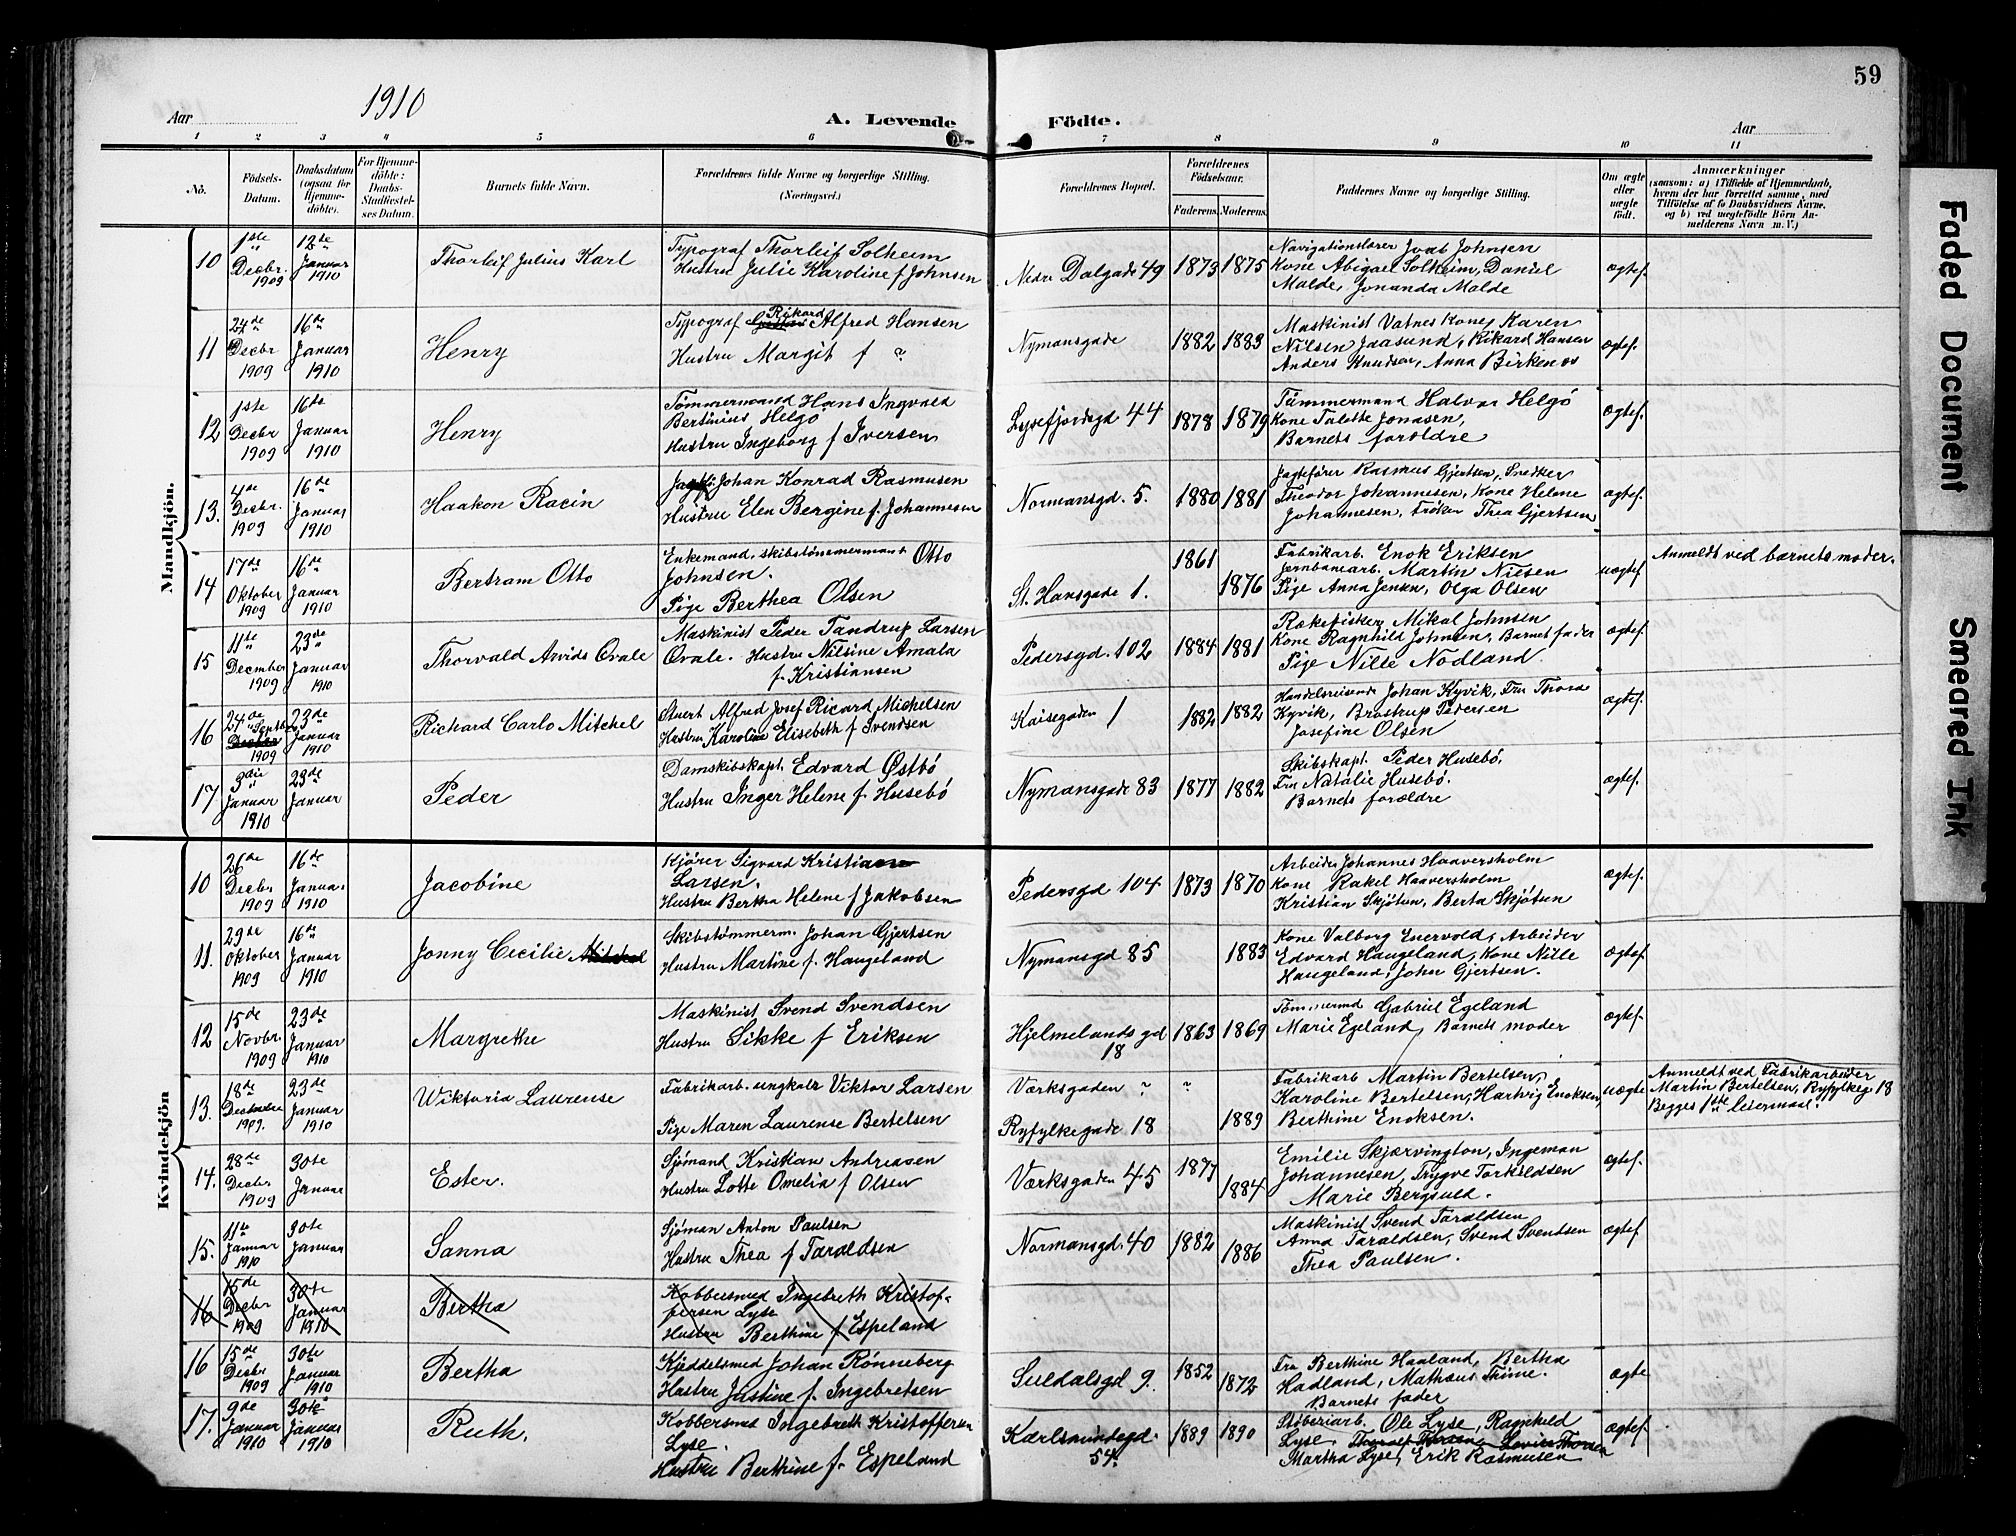 59
1910
Aar
A. Levende
Födte.
Aar
1 2 3 4 5 6 7 8 9 10 11
No.
Födsels-
Datum.
Daabsdatum
(ogsaa for
Hjemme-
döbte).
For Hjemme-
döbte:
Daabs-
Stadfæstel-
ses Datum.
Barnets fulde Navn.
Forældrenes fulde Navne og borgerlige Stilling.
(Næringsvei.)
Forældrenes Bopæl.
Forældrenes
Födselsaar.
Faderens.
Moderens.
Faddernes Navne og borgerlige Stilling.
Om ægte
eller
uægte
födt.
Anmærkninger
(saasom: a) i Tilfælde af Hjemmedaab,
hvem der har forrettet samme, med
Tilföielse af to Daabsvidners Navne,
og b) ved uægtefödte Börn An-
melderens Navn m. V.)
Mandkjön.
10
1ste
Decbr.
1909
12te
Januar
1910
Thorleif Julius Karl
Typograf Thorleif Solheim
Hustru Julie Karoline f Johnsen
Nedre Dalgade 49
1873
1875
Navigationslærer Joab Johnsen
Kone Abigael Solheim, Daniel
Malde, Jonanda Malde
ægtef.
11
24de
Decbr
1909
16de
Januar
1910
Henry
Rikard
Typograf Alfred Hansen
Hustru Margit f ?
Nymansgade
1882
1883
Maskinist Vatnes Kone, Karen
Nilsen Jaasund, Rikard Hansen
Anders Knudsen, Anna Birkenes
ægtef.
12
1ste
Decbr
1909
16de
Januar
1910
Henry
Tömmermand Hans Ingvald
Bertinius Helgö
Hustru Ingeborg f Iversen
Lysefjordsgd 44
1878
1879
Tömmermand Halvar Helgö
Kone Talette Jonasen,
Barnets forældre
ægtef.
13.
4de
Decbr.
1909
16de
Januar
1910
Haakon Racin
Johan Konrad Rasmusen
Hustru Elen Bergine f. Johannesen
Normansgd. 5.
1880
1881
Jagtefører Rasmus Gjertsen, Snedker
Theodor Johannesen, Kone Helene
Johannesen, Fröken Thea Gjertsen
ægtef.
14
17de
Oktober
1909
16de
Januar
1910
Bertram Otto
Enkemand, skibstömmermand Otto
Johnsen.
Pige Berthea Olsen
St. Hansgade 1.
1861
1876
Fabrikarb. Enok Eriksen
Jernbanearb. Martin Nilsen
Pige Anna Jensen, Olga Olsen
uægtef.
Anmeldt ved barnets moder.
15
11te
Decmber
1909
23de
Januar
1910
Thorvald Arvids Qvale
Maskinist Peder Tandrup Larsen
Qvale. Hustru Nilsine Amala
f. Kristiansen
Pedersgd. 102
1884
1881
Rækefisker Mikal Johnsen
Kone Ragnhild Johnsen, Barnets fader
Pige Nille Nodland.
ægtef.
16
24de
Septbr
1909
23de
Januar
1910
Richard Carlo Mitchel
Stuert Alfred Josef Ricard Michelsen
Hustru Karoline Elisebeth f Svendsen
Kaisegaden 1
1882
1882
Handelsreisende Johan Kyvik, Fru Thora
Kyvik, Brostrup Pedersen
Josefine Olsen
ægtef.
17
3die
Januar
1910
23de
Januar
Peder
Damskibskapt. Edvard Østbö
Hustru Inger Helene f. Husebö
Nymansgade 83
1877
1882
Skibskapt. Peder Husebö,
Fru Natalie Husebö.
Barnets forældre
ægtef.
Kvindekjön
10
26de
Decbr
1909
16de
Januar
1910
Jacobine
Kjörer Sigvard Kristian
Larsen.
Hustru Bertha Helene f Jakobsen
Pedersgd 104
1873
1870
Arbeider Johannes Haaversholm
Kone Rakel Haaversholm
Kristian Skjötun, Berta Skjötun
ægtef.
11.
29de
Oktober
1909
16de
Januar
1910
Jonny Cecilie
Skibstömmerm. Johan Gjertsen
Hustru Martine f. Haugeland
Nymansgd 85
1883
Kone Valborg Enervold, Arbeider
Edvard Haugeland, Kone Nille
Haugeland, John Gjertsen.
ægtef.
12
15de
Novbr.
1909
23de
Januar
1910
Margrethe
Maskinist Svend Svendsen
Hustru Sikke f Eriksen
Hjelmelandsgd
18
1863
1869
Tömmermd Gabriel Egeland
Marie Egeland, Barnets moder
ægtef.
13.
18de
1909.
23de
Januar
1910
Wiktoria Laurense
Fabrikarb. ungkalr Viktor Larsen
Pige Maren Laurense Bertelsen
Værksgaden "
Ryfylkegade 18
"
1889
Fabrikarb Martin Bertelsen,
Karoline Bertelsen, Hartvig Enoksen,
Berthine Enoksen.
uægte
Anmeldt ved Fabrikarbeider
Martin Bertelsen, Ryfylkeg 18
Begges 1ste leiermaal.
14.
28de
Decbr
1909
30te
Januar
Ester.
Sjömand Kristian Andreasen
Hustru Lotte Omelia f Olsen
Værksgaden 45
1877
1884
Emilie Skjærvington, Ingeman
Johannesen, Trygve Torkildsen
Marie Bergsved.
ægtef.
15.
11te
Januar
1910
30te
Januar
Sanna
Sjöman Anton Paulsen
Hustru Thea f Taraldsen
Normansgd. 40
1882
1886
Maskinist Svend Taraldsen
Anna Taraldsen, Svend Svendsen
Thea Paulsen.
ægtef
16
15de
Decbr
1909
30te
Januar
1910
Bertha
Kobbersmed Ingebreth Kristof-
fersen Lyse
Hustru Berthine f Espeland
16
15de
Decbr
1909
30te
Januar
1910
Bertha
Kjeddelsmed Johan Rönneberg
Hustru Justine f. Ingebretsen
Suldalsgd 9.
1852
1872
Fru Berthine Haaland, Bertha
Hadland, Mathæus Thime.
Barnets fader
ægte
17.
9de
Januar
1910
30te
Januar
1910
Ruth.
Kobbersmed Ingebreth Kristoffersen
Lyse.
Hustru Berthine f. Espeland
Karlsmindegd.
54.
1889
1890
Stöberiarb. Ole Lyse, Ragnhild
Lyse,
Martha Lyse, Erik Rasmusen
ægtef.
Faded Document
Smeared Ink